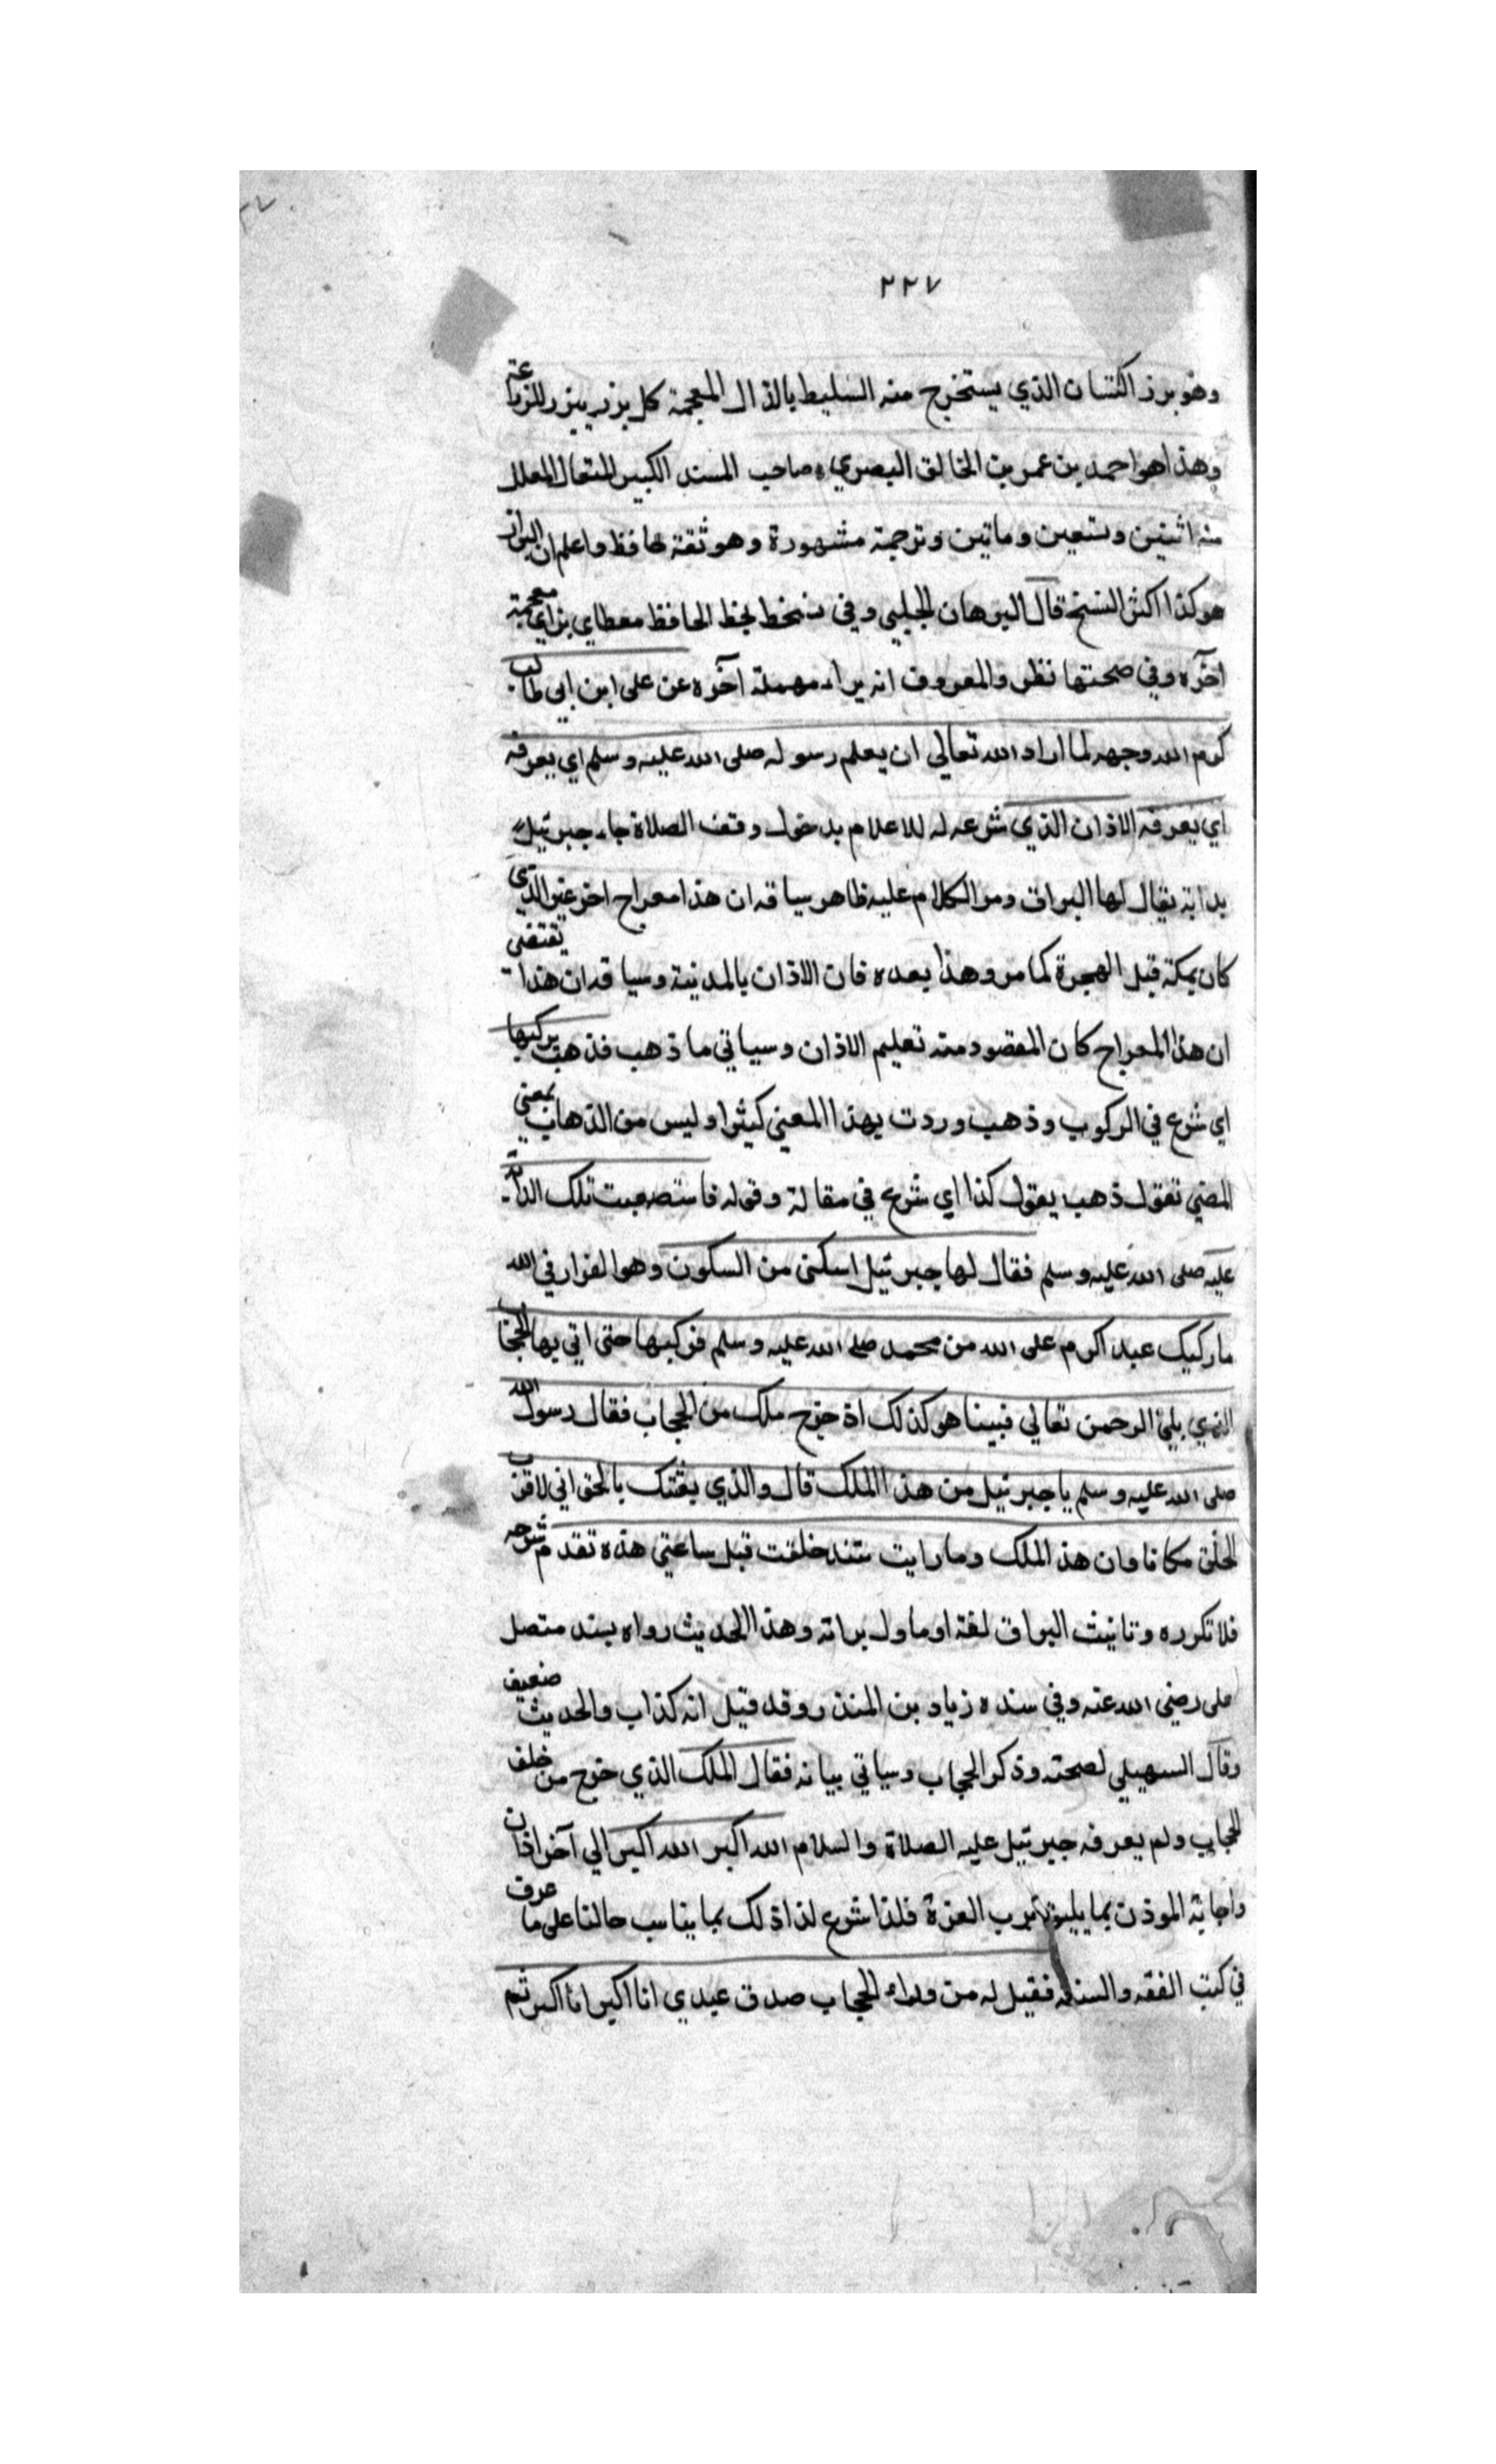 ٢٢٧
وهو بزر الكتان الذي يستخرج منه السليط بالذال المعجمة كل بزر يبزر للزراعة
وهذا هو احمد بن عمر بن الخالق البصري صاحب المسند الكبير المعلل
منه اثنتين وتسعين وماتين وترجمة مشهورة وهو ثقة حافظ واعلم ان البزار
هو كذا اكثر النسخ قال البرهان الحلبي وفي نسخط بخط الحافظ مغطاي بزاي معجمة
اخره وفي صحتها نظر والمعروف انه براء مهملة آخره عن على ابن ابي طالب
كرم الله وجهه لما اراد الله تعالي ان يعلم رسوله صلى الله عليه وسلم اي يعرفه
اي يعرفه الاذان الذي شرعه له للاعلام بدخول وقت الصلاة جاء جبرئيل
بدابة يقال لها البراق ومر الكلام عليه ظاهر سياقه ان هذا معراج اخر غير الذي
كان بمكة قبل الهجرة كما مر وهذا بعده فان الاذان بالمدينة وسياقه ان هذا يقتضى
ان هذا المعراج كان المقصود منه تعليم الاذان وسياتي ما ذهب فذهب يركبها
اي شرع في الركوب وذهب وردت بهذا المعني كثيرا وليس من الذهاب بمعني
المضي تقول ذهب يقول كذا اي شرع في مقالة وقوله فاستصعبت تلك الدابة
عليه صلى الله عليه وسلم فقال لها جبرئيل اسكنى من السكون وهو القرار في الله
ما ركبك عبد اكرم على الله من محمد صلى الله عليه وسلم فركبها حتى اتي بها الحجا
الذي يلي الرحمن تعالي فبينا هو كذلك اذ خرج ملك من الحجاب فقال رسول الله
صلى الله عليه وسلم يا جبرئيل من هذا الملك قال والذي بعثك بالحق اني لاقرب
الخلق مكانا وان هذ الملك وما رايت منذ خلقت قبل ساعتي هذه تقدم شرحه
فلا تكرره وتانيث البراق لغة او ماول بدابة وهذا الحديث رواه بسند متصل
على رضي الله عنه وفي سنده زياد بن المنذر وقد قيل انه كذاب والحديث ضعيف
وقال السهيلي لصحته وذكر الحجاب وسياتي بيانه فقال الملك الذي خرج من خلف
الحجاب ولم يعرفه جبرئيل عليه الصلاة والسلام الله اكبر الله اكبر الي آخر اذان
واجابة الموذن بما يليق برب العزة فلذا شرع لذاذلك بما يناسب حالنا على ما عرف
في كتب الفقه والسنة فقيل له من وراء الحجاب صدق عبدي انا اكبر انا اكبر ثم